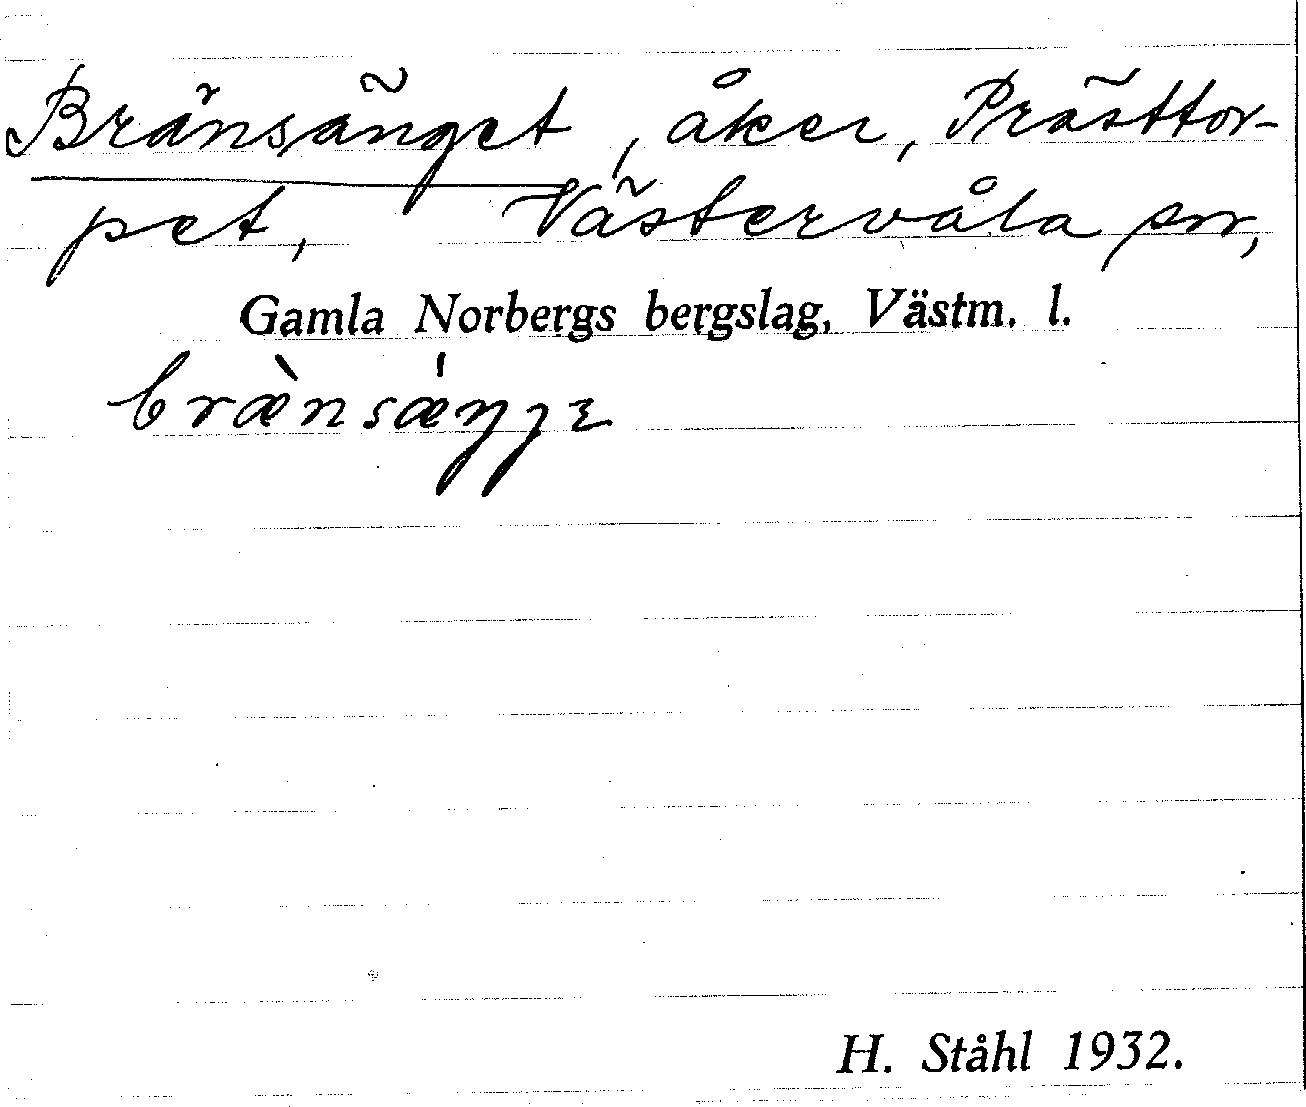 Bränsänget, åker, Prästtor-
pet, Västervåla sn,
Gamla Norbergs bergslag, Västm. l.
bræ̀nsǽŋŋɛ
H. Ståhl 1932.